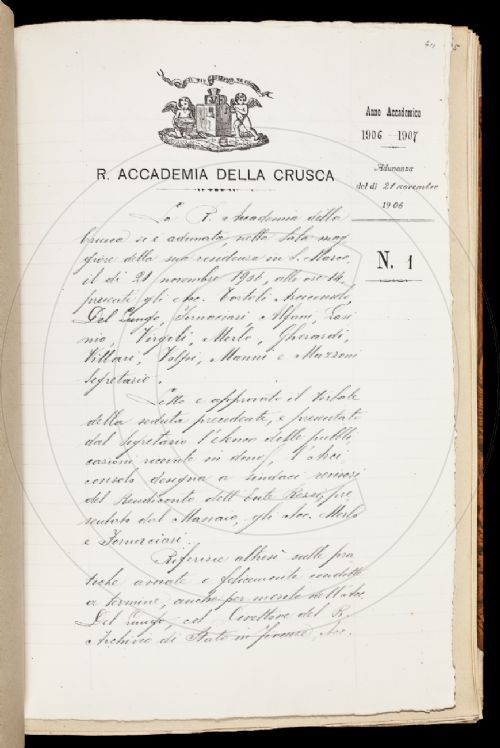 Anno Accademico
1906-1907
Adunanza
del dì 21 novembre
1906
N. 1
R. ACCADEMIA DELLA CRUSCA
La R. Accademia della
Crusca si è adunata, nella Sala mag
giore della sua residenza in S. Marco,
il dì 21 novembre 1906, alle ore 14,
presenti gli Acc. Tortoli Arciconsolo,
Del Lungo, Fornaciari, Alfani, Rasi
nio, Virgili, Merlo, Gherardi,
Villari, Volpi, Manni e Mazzoni
Segretario.
Letto e approvato il Verbale
della seduta precedente, e presentato
dal Segretario l'elenco delle pubbli
cazioni ricevute in dono, l'Arci
consolo designa a sindaci revisori
del Rendiconto dell'Ente Rezzi, pre
sentato dal Massaio, gli Acc. Merlo
e Fornaciari.
Riferisce altresì sulle pra
tiche avviate e felicemente condotte
a termine, anche per merito dell'Acc.
Del Lungo, col Direttore del R.
Archivio di Stato in Firenze, Acc.